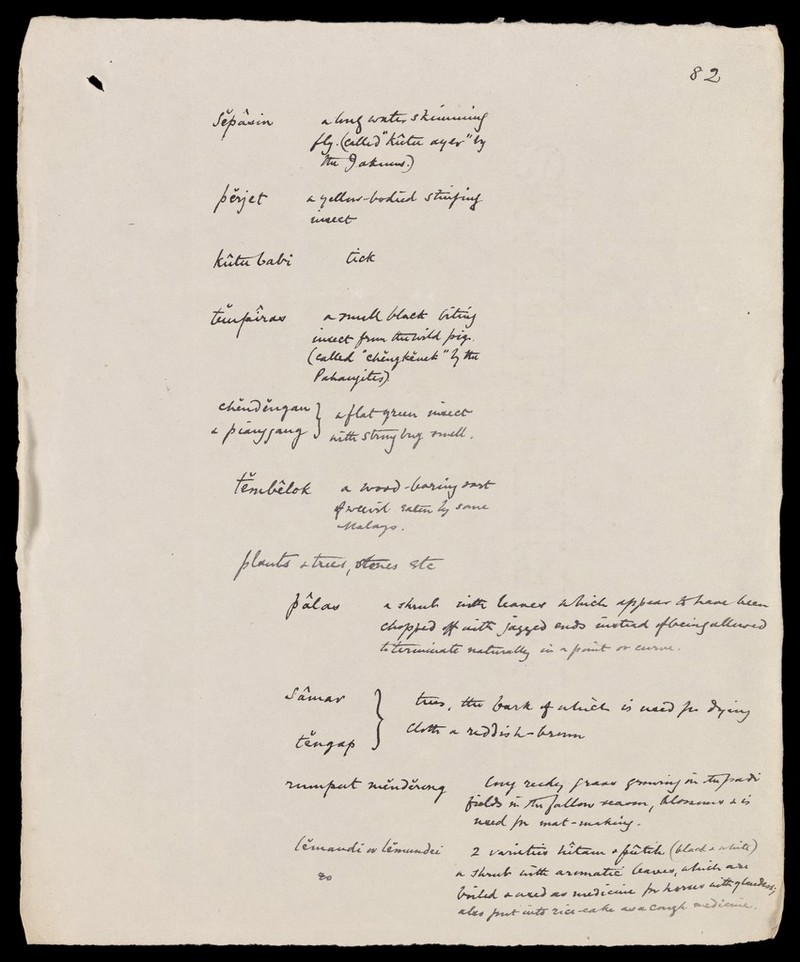 82
sĕpâsin a long water skimming
fly. (called "kûtu ayer" by
the Jakuns.)
pĕrjet a yellow-bodied stinging
insect
kûtu babi tick
a small black biting
insect from the wild pig.
(called "chĕngkĕnek" by the
Pahangites)
chĕndĕngan } a flat green insect
& pianggang with strong bug smell.
tĕmbêlok a wood-boring sort
of weevil eaten by some
Malays.
plants & trees, stones etc
pâlas a shrub with leaves which appear to have been
chopped off with jagged ends instead of being allowed
to terminate naturally in a point or curve.
sâmar } trees, the bark of which is used for dying
tĕngap cloth a reddish-brown
rumput mĕndĕrong long reedy grass growing in the padi
fields in the fallow season, blossoms & is
used for mat-making.
lĕmaudi or lĕmundei 2 varieties hîtam & pûtih (black & white)
a shrub with aromatic leaves, which are
boiled & used as medicine for horses with glanders;
also put into rice-cake as a cough medicine.